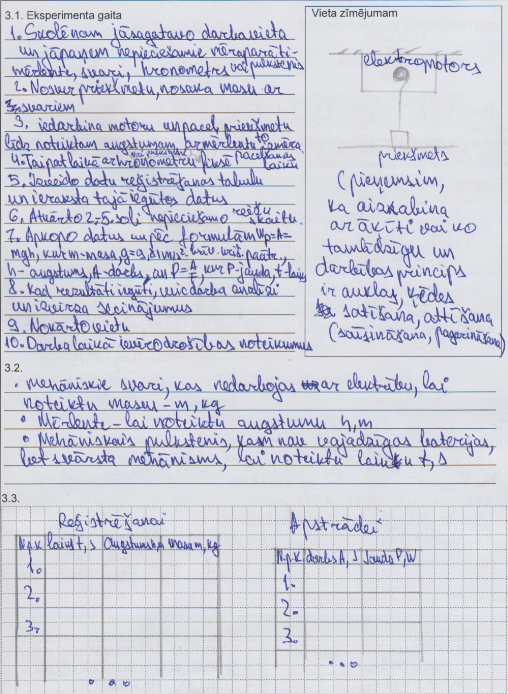 3.1. Eksperimenta gaita
1. Skolēnam jāsagatavo darba vieta
un jāpaņem nepieciešamie mēraparāti-
mērlente, svari, hronometrs vai pulkstenis
2. Nosver priekšmetu, nosaka masu ar
svariem
3. iedarbina motoru un paceļ priekšmetu
līdz noteiktam augstumam, ar mērlenti to izmēra
4. Tai pat laikā ar hronometru fiksē pacelšanas
laiku
5. Izveido datu reģistrēšanas tabulu
un ieraksta tajā iegūtos datus
6. Atkārto 2.-5. soli nepieciešamo reižu
skaitu.
7. Apkopo datus un pēc formulām Wp=A=
mgh, kur m-masa, g=9,81 m/s² brīv. krit. paātr.,
h-augstums, A-darbs, un P=A/t, kur P-jauda, t-laiks
8. kad rezultāti iegūti, veic darba analīzi
un izvirza secinājumus
9. Nokārto vietu
10. Darba laikā ievēro drošības noteikumus
Vieta zīmējumam
elektromotors
priekšmets
(pieņemsim,
ka aizkabina
ar āķīti vai ko
tamlīdzīgu un
darbības princips
ir auklas, ķēdes
satīšana, attīšana
(saīsināšana, pagarināšana)
3.2.
• mehāniskie svari, kas nedarbojas ar elektrību, lai
noteiktu masu - m, kg
• Mērlente - lai noteiktu augstumu h, m
• Mehāniskais pulkstenis, kam nav vajadzīgas baterijas,
bet svārsta mehānisms, lai noteiktu laiku t, s
3.3.
Reģistrēšanai
N.p.k laiks t, s Augstums h, m masa m, kg
1.
2.
3.
...
Apstrādei
N.p.k darbs A, J Jauda P, W
1.
2.
3.
...